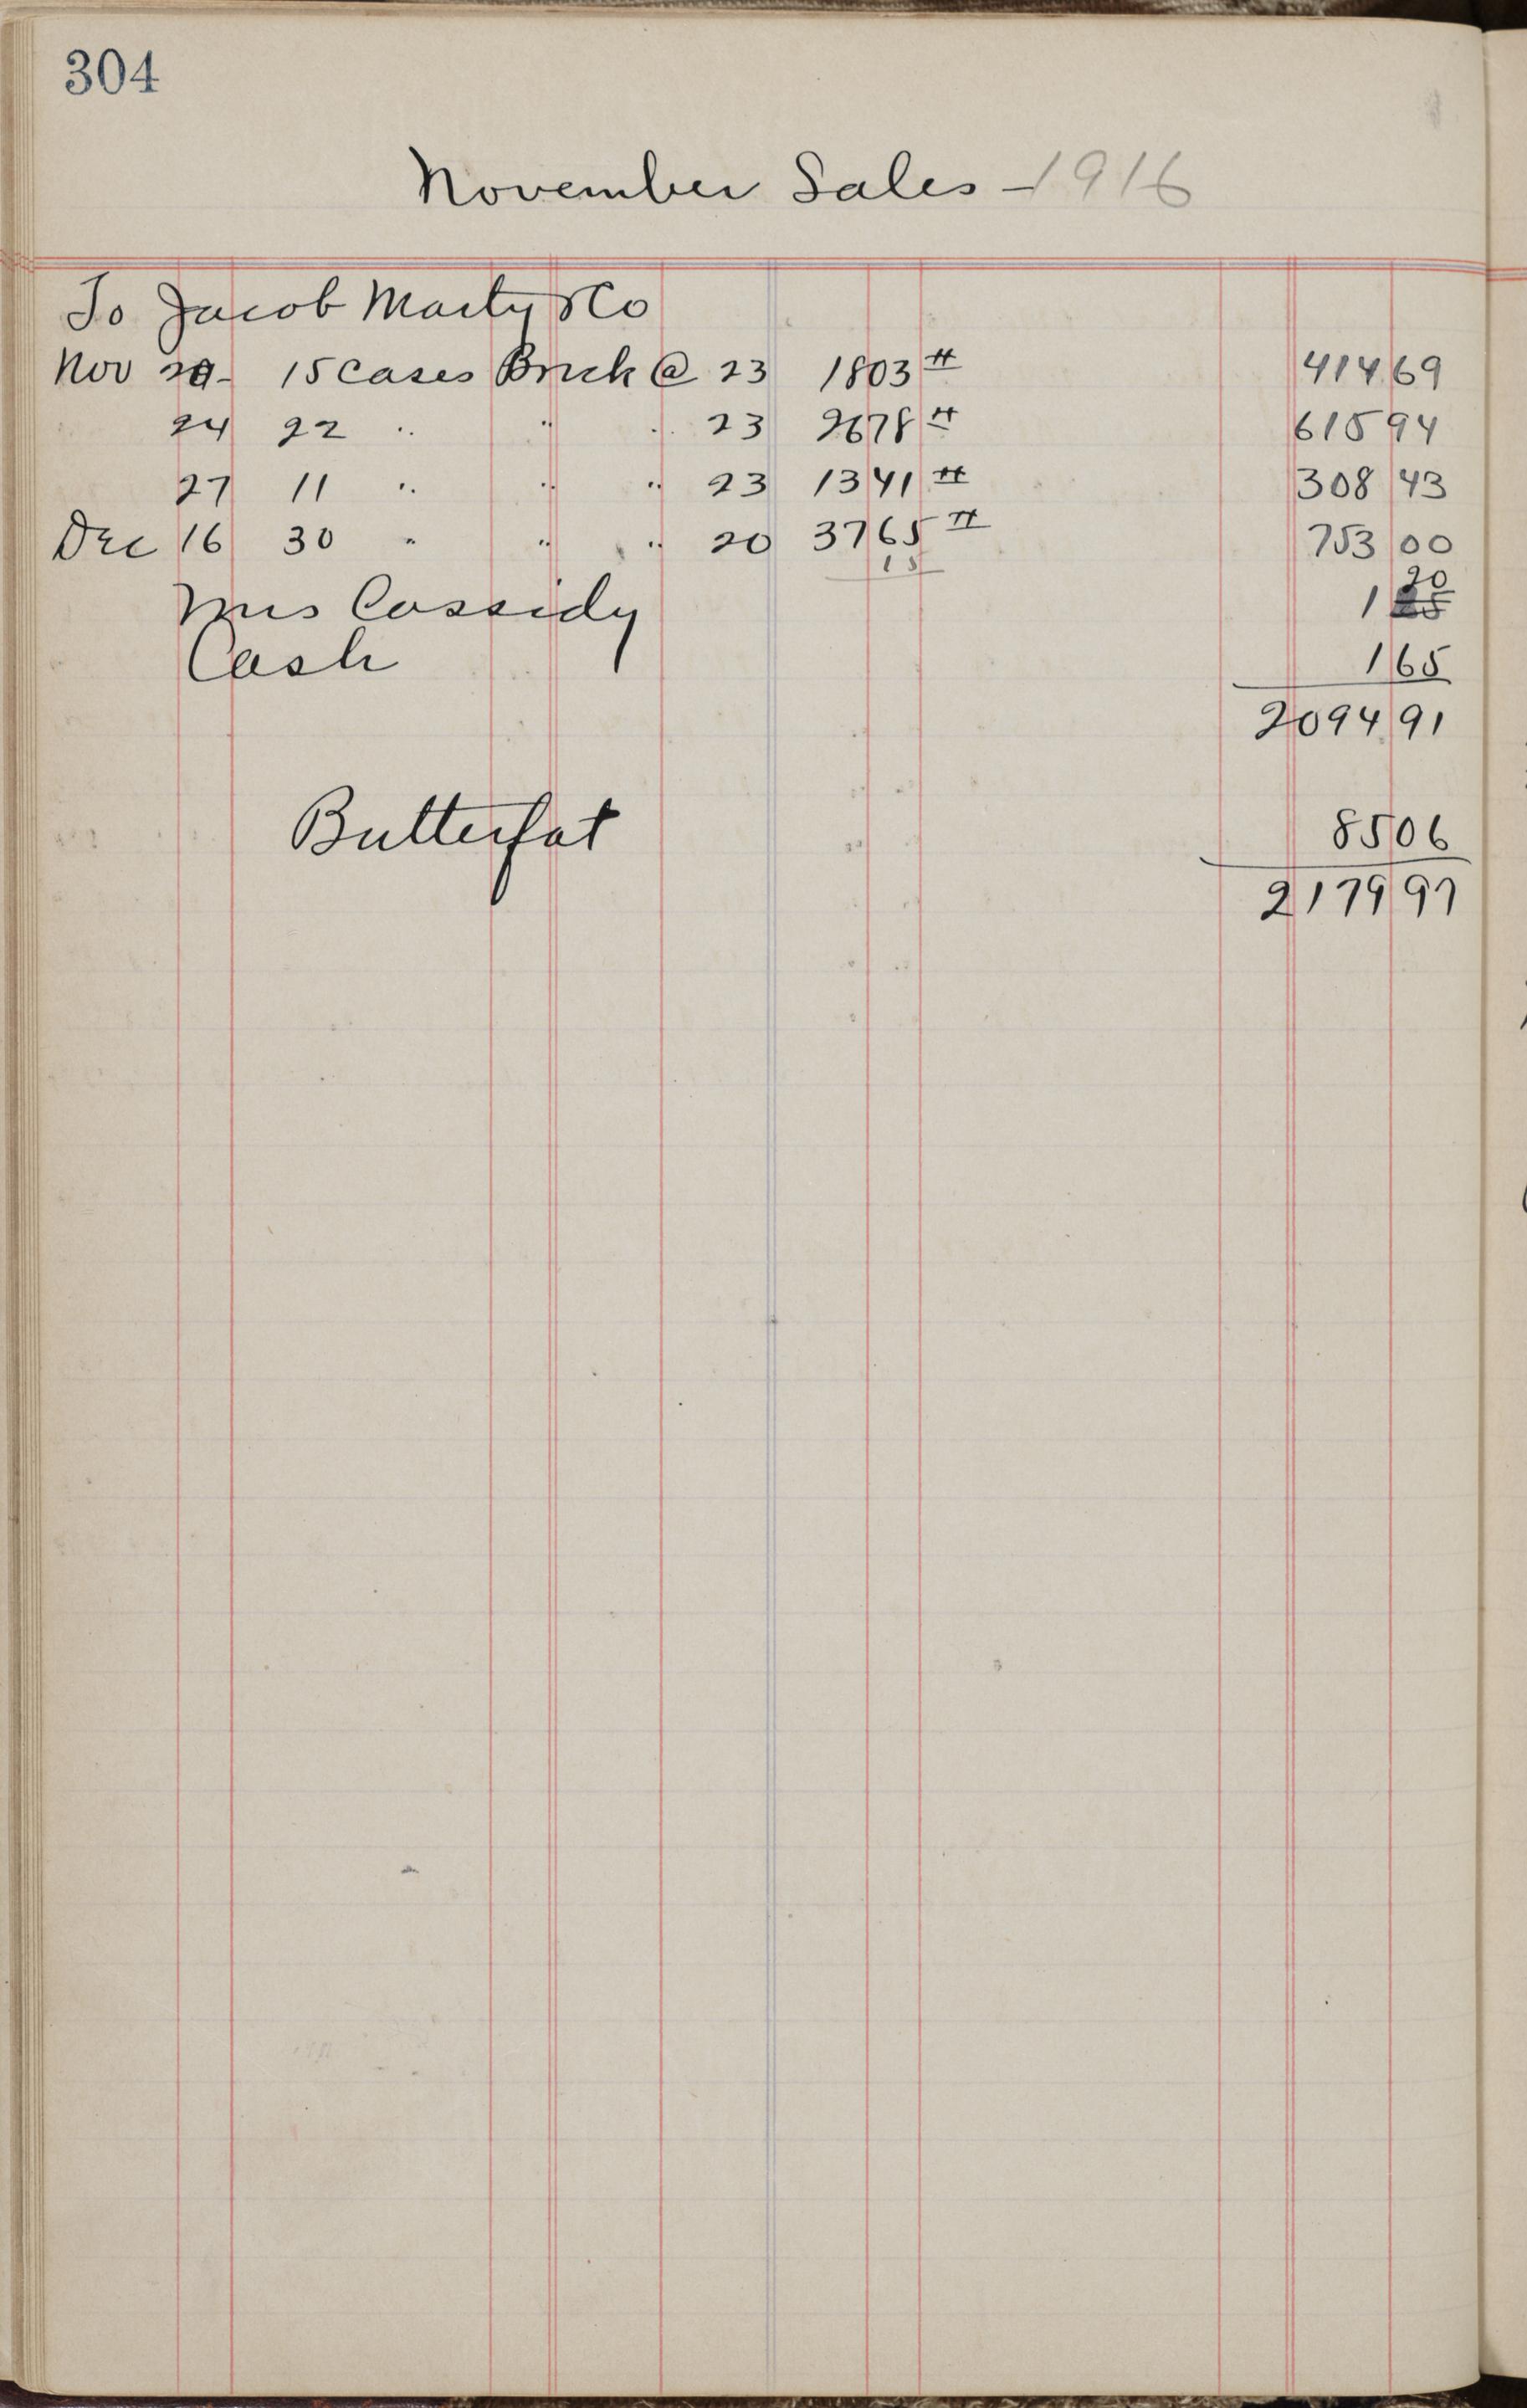 304
November Sales - 1916
To Jacob Marty & Co
Nov 20 - 15 Cases Brick @ 23 1803 # 414 69
24 22 " " " 23 2678 # 615 94
27 11 " " " 23 1341 # 308 43
Dec 16 30 " " " 20 3765 # 753 00
15 20
Mrs Cassidy 1 25
Cash 1 65
2094 91
Butterfat 85 06
2179 97